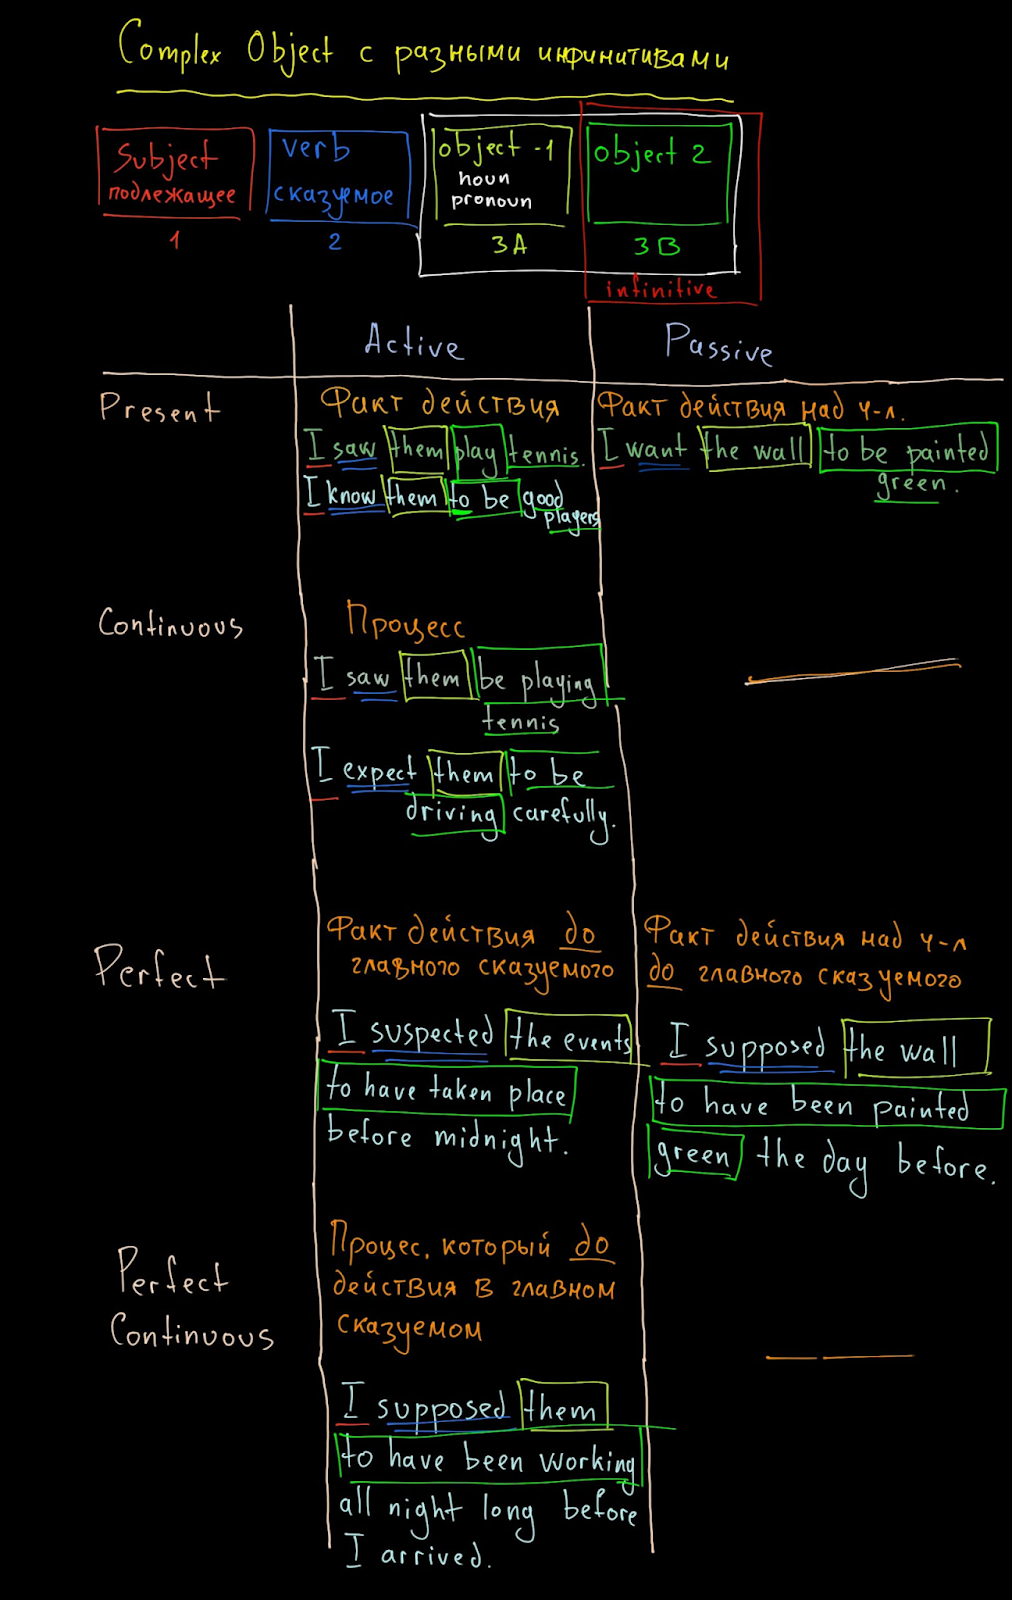 Complex Object с разными инфинитивами
Subject
подлежащее
1
verb
сказуемое
2
object -1
noun
pronoun
3A
object 2
3B
infinitive
Active
Passive
Present
Факт действия
I saw them play tennis.
I know them to be good
players
Факт действия над ч-л.
I want the wall to be painted
green.
Continuous
Процесс
I saw them be playing
tennis
I expect them to be
driving carefully.
Perfect
Факт действия до
главного сказуемого
I suspected the events
to have taken place
before midnight.
Факт действия над ч-л
до главного сказуемого
I supposed the wall
to have been painted
green the day before.
Perfect
Continuous
Процес, который до
действия в главном
сказуемом
I supposed them
to have been working
all night long before
I arrived.